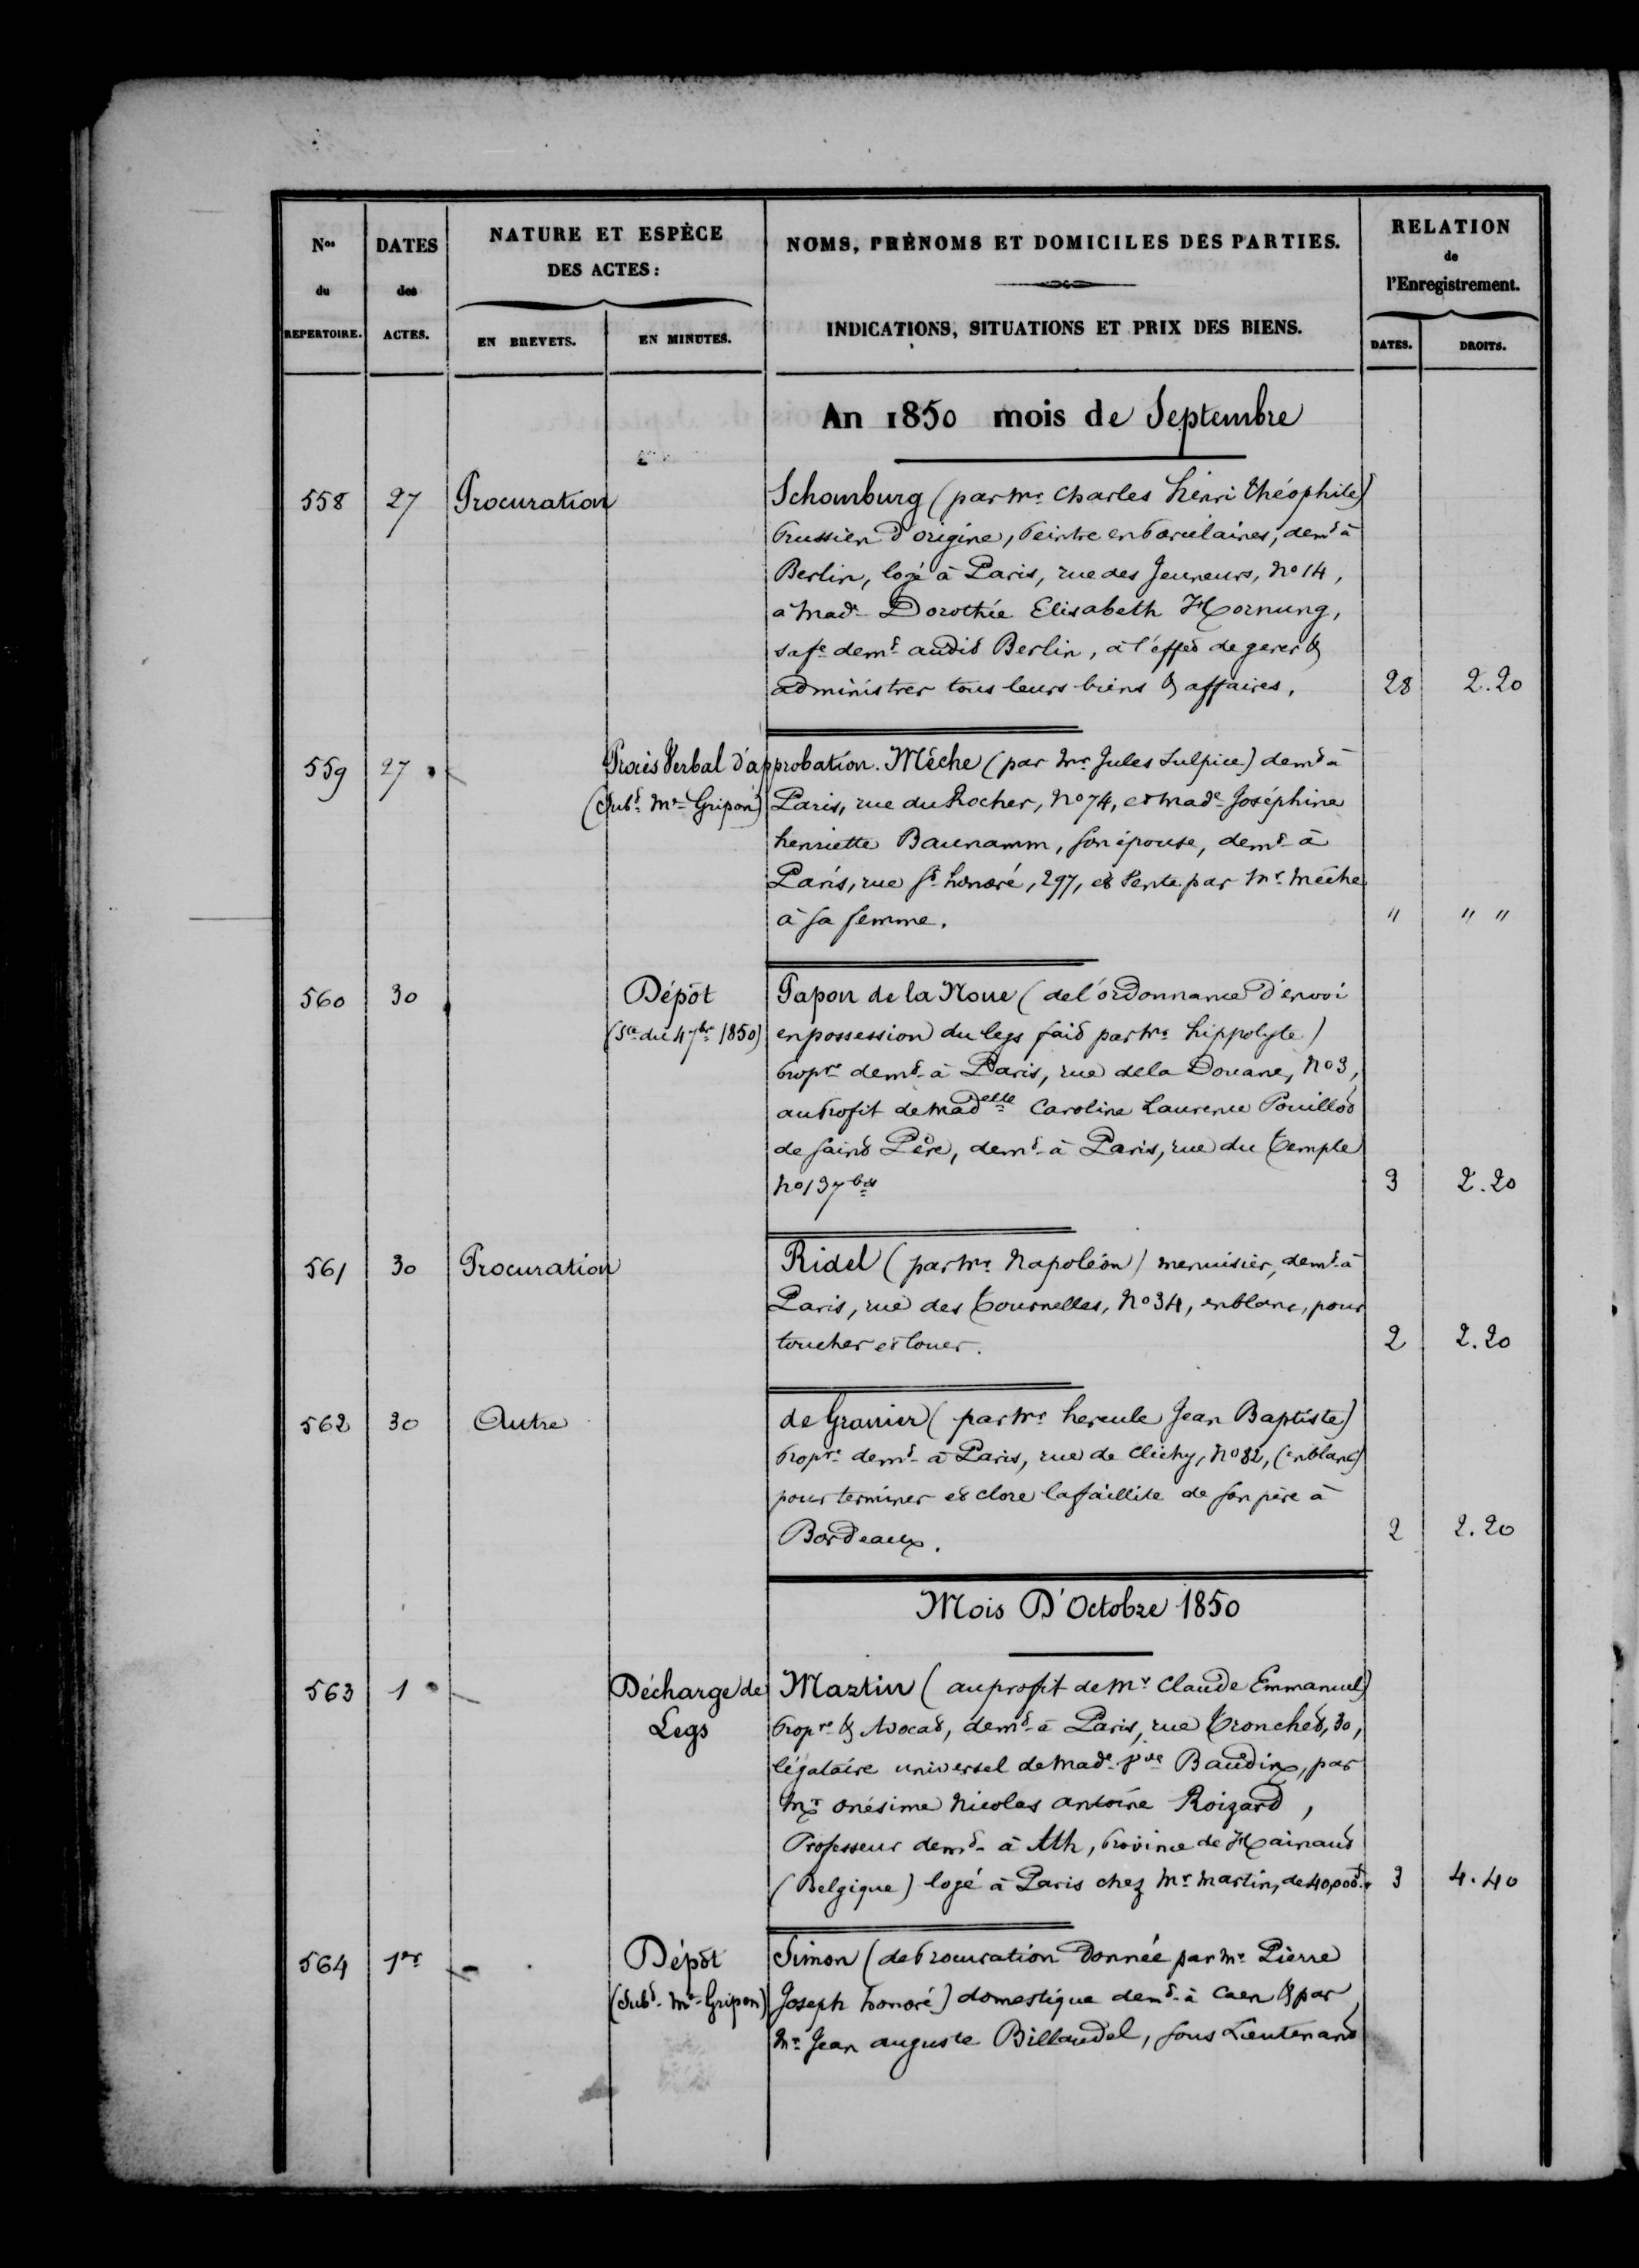 Nos
du
REPERTOIRE.
DATES
des
ACTES.
NATURE ET ESPÈCE
DES ACTES:
EN BREVETS.
EN MINUTES.
NOMS, PRÉNOMS ET DOMICILES DES PARTIES.
INDICATIONS, SITUATIONS ET PRIX DES BIENS.
RELATION
de
l'Enregistrement.
DATES.
DROITS.
An 1850 mois de Septembre
558 27 Procuration Schomburg (par Mr. Charles henri Théophile)
Prussien d'origine, Peintre en Porcelaines, demt à
Berlin, logé à Paris, rue des Jeuneurs, No 14,
à Made Dorothée Elisabeth Hornung,
sa fe demt audit Berlin, à l'effet de gerer &
administrer tous leurs biens & affaires. 28 2.20
559 27 Procès Verbal d'approbation. Mêche (par Mr Jules Sulpice) demt à
(Subt Me Gripon) Paris, rue du Rocher, No 74, et made Joséphine
henriette Baunamm, son épouse, demt à
Paris, rue St honoré, 297, et Vente par Mr Mêche
à sa femme. " " "
560 30 Dépôt Papon de la Noue (de l'ordonnance d'envoi
(Sce du 4 7bre 1850) en possession du legs fait par Mr hippolyte)
Propre demt à Paris, rue de la Douane, No 3,
au Profit de Madelle Caroline Laurence Pouillot
de Saint Père, demt à Paris, rue du Temple
No 137 bis 3 2.20
561 30 Procuration Ridel (par Mr Napoléon) menuisier, demt à
Paris, rue des Tournelles, No 34, en blanc, pour
toucher et louer. 2 2.20
562 30 Autre de Granier (par Mr hercule Jean Baptiste)
Propre demt à Paris, rue de Clichy, No 82, (en blanc)
pour terminer et clore la faillite de son père à
Bordeaux. 2 2.20
Mois D'Octobre 1850
563 1 Décharge de Martin (au profit de Mr Claude Emmanuel)
Legs Propre & Avocat, demt à Paris, rue Tronchet, 30,
légataire universel de Made Vve Baudin, par
Mr onésime Nicolas antoine Roizard,
Professeur demt à Ath, Province de Hainaut
(Belgique) logé à Paris chez Mr Martin, de 40,000f. 3 4.40
564 1er Dépôt Simon (de Procuration donnée par Mr Pierre
(Subt Me Gripon) Joseph honoré) domestique demt à Caen & par
Mr Jean auguste Billaudel, sous Lieutenant